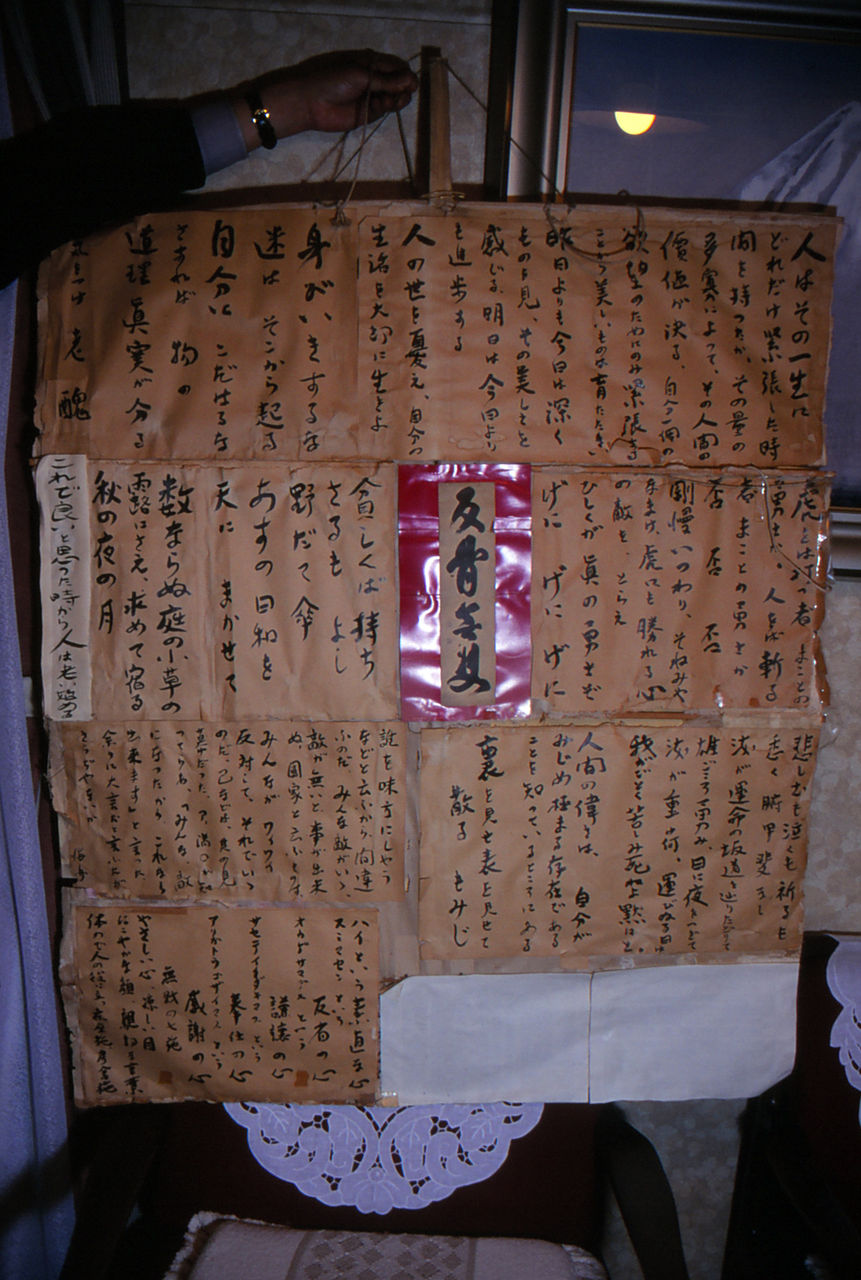 人はその一生に
どれだけ緊張した時
間を持つたか、その量の
多寡によって、その人間の
價値が決る、自分一個の
欲望のためにのみ緊張する
ことから美しいものは育たない
昨日よりも今日は深く
ものを見、その美しさを
感じる、明日は今日より
も進歩する
人の世を憂え、自分の
生活を大切に生きよ
身びいきするな
迷は そこから起る
自分に こだはるな
さすれば 物の
道理 眞実が分る
気をつけ 老醜
虎をば打つ者 まことの
勇士か、人をば斬る
者 まことの勇士か
否 否 否
剛慢 いつわり、そねみや
なまけ、虎にも勝れる心
の敵を、とらえ
ひしぐが 眞の勇士ぞ
げに げに げに
反骨無双
貧しくば 持ち
さるも よし
野だて傘
あすの日和を
天に まかせて
数ならぬ庭の小草の
露にさえ、求めて宿る
秋の夜の月
これで良いと思った時から人は老い始める
悲しむも泣くも祈るも
悉く 腑甲斐なし
汝が運命の坂道を辿りたどりて
雄ごころ勇み、日に夜をつぎて
汝が重荷、運びゐる日は
我がごと苦しみ死ね、黙々と。
人間の偉さは、 自分が
みじめ極まる存在である
ことを知っているところにある
裏を見せ表を見せて
散る もみじ
誰を味方にしやう
などと云ふから間違
ふのだ、みんな敵がいゝ、
敵が無いと事が出来
ぬ、國家と云ふものは、
みんながワイワイ
反対して、それでいゝ
のだ、
になったから、これなら
出来ます」と言った
ハイという素直な心
スミマセンという
反省の心
オカゲサマデスという
謙譲の心
サセテイタダキマスという
奉仕の心
アリガトウゴザイマスという
感謝の心
無財の七施
やさしい心、涼しい目
にこやかな顔、親切な言葉